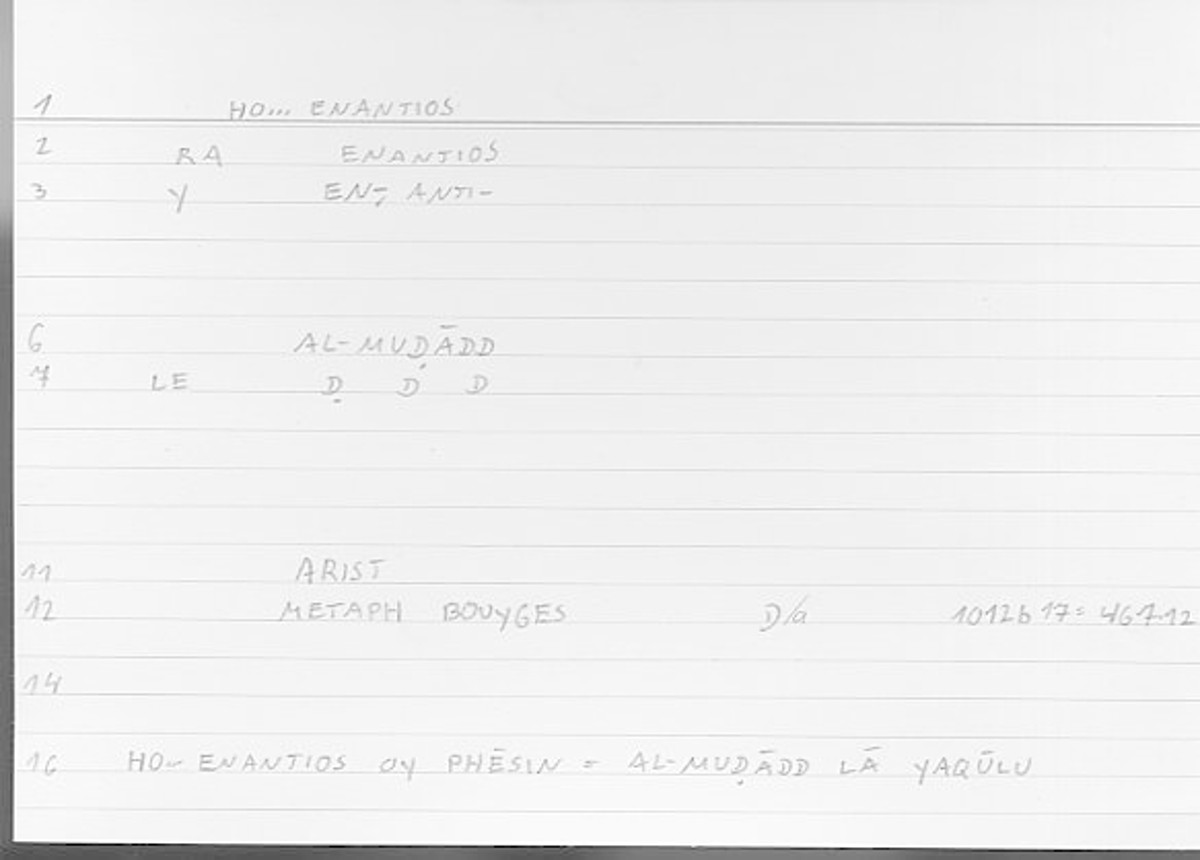 1 HO... ENANTIOS
2 RA ENANTIOS
3 Y EN-, ANTI-
6 AL-MUḌĀDD
7 LE Ḍ D D
11 ARIST
12 METAPH BOUYGES D/a 1012b 17 = 467.12
14
16 HO... ENANTIOS OY PHĒSIN = AL-MUḌĀDD LĀ YAQŪLU